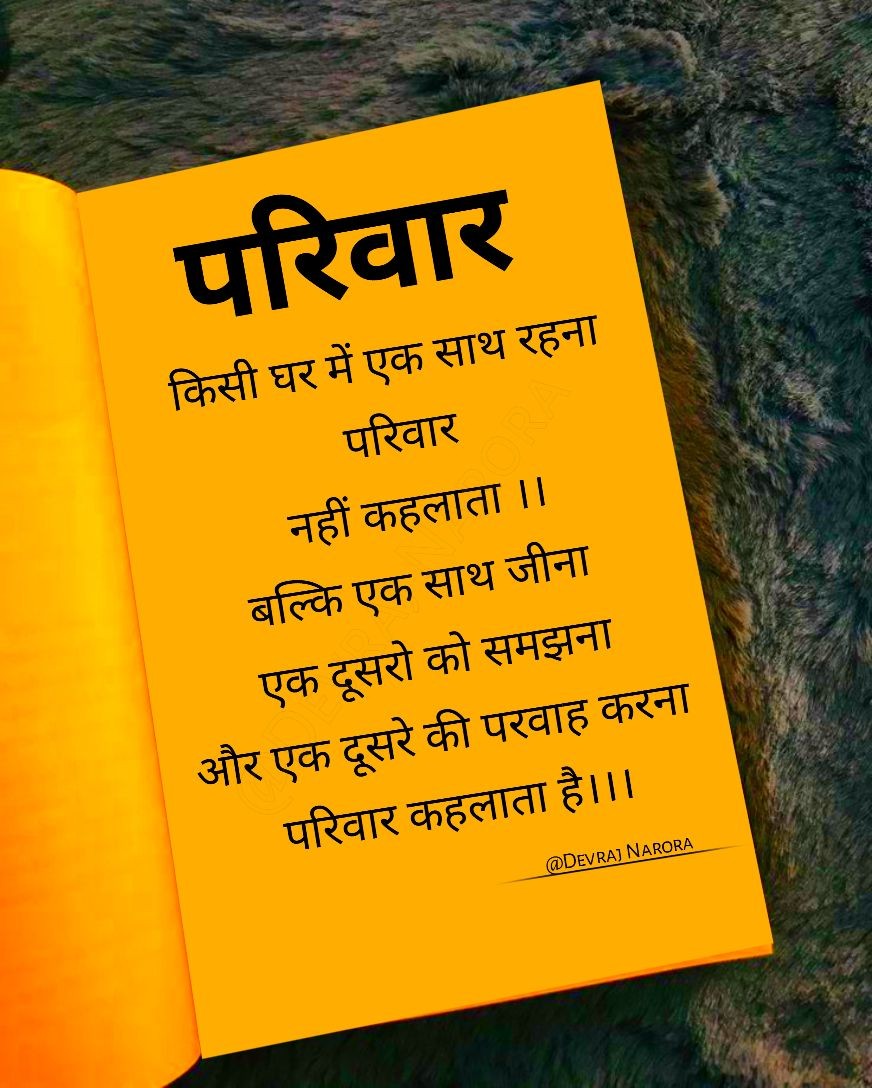 परिवार
किसी घर में एक साथ रहना
परिवार
नहीं कहलाता ।।
बल्कि एक साथ जीना
एक दूसरो को समझना
और एक दूसरे की परवाह करना
परिवार कहलाता है।।।
@Devraj Narora
@DEVRAJ NARORA